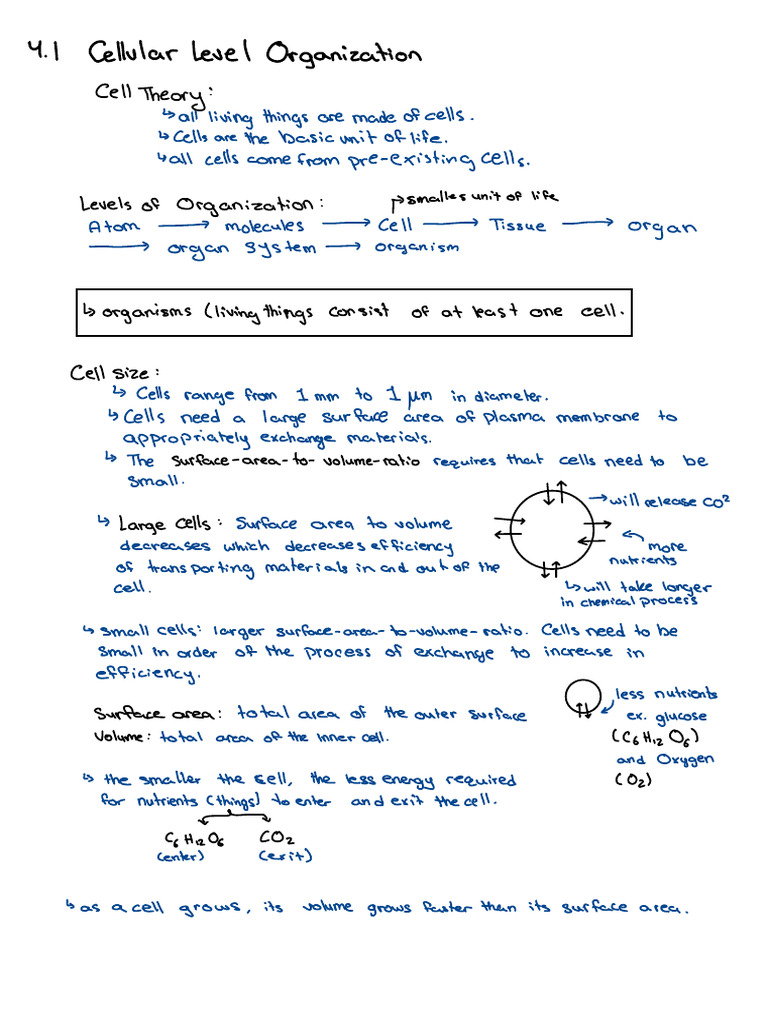 4.1 Cellular Level Organization
Cell Theory:
↳ all living things are made of cells.
↳ Cells are the basic unit of life.
↳ all cells come from pre-existing cells.
Levels of Organization:
smalles unit of life
Atom → molecules → Cell → Tissue → organ
→ organ system → organism
↳ organisms (living things consist of at least one cell.
Cell size:
↳ Cells range from 1 mm to 1 μm in diameter.
↳ Cells need a large surface area of plasma membrane to
appropriately exchange materials.
↳ The surface-area-to-volume-ratio requires that cells need to be
small.
→ will release CO²
↳ Large cells: Surface area to volume
decreases which decreases efficiency
of transporting materials in and out of the
cell.
more
nutrients
↳ will take longer
in chemical process
↳ small cells: larger surface-area-to-volume-ratio. Cells need to be
small in order of the process of exchange to increase in
efficiency.
Surface area: total area of the outer surface
Volume: total area of the inner cell.
less nutrients
ex. glucose
(C₆H₁₂O₆)
and Oxygen
(O₂)
↳ the smaller the cell, the less energy required
for nutrients (things) to enter and exit the cell.
C₆H₁₂O₆ CO₂
(enter) (exit)
↳ as a cell grows, its volume grows faster than its surface area.